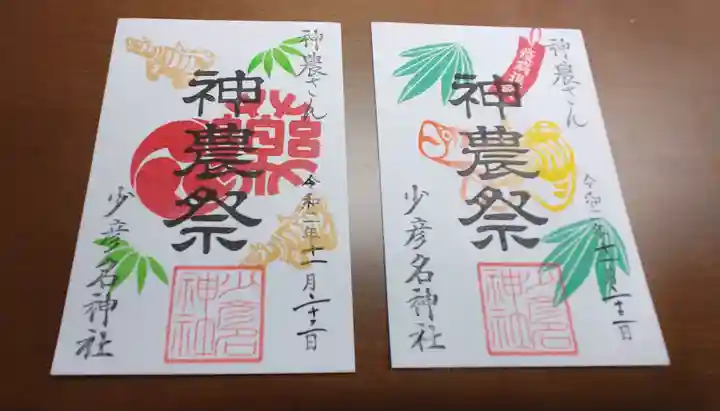 神農さん
神農祭
令和二年十一月二十二日
少彦名神社
少彦名神社
神農さん
神農祭
少彦名神社
少彦名神社